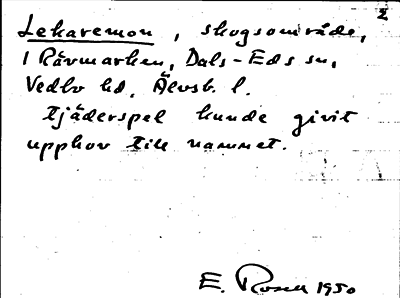 2
Lekaremon, skogsområde,
i Rävmarken, Dals-Eds sn,
Vedbo hd, Älvsb. l.
Tjäderspel kunde givit
upphov till namnet.
E. Rosell 1950